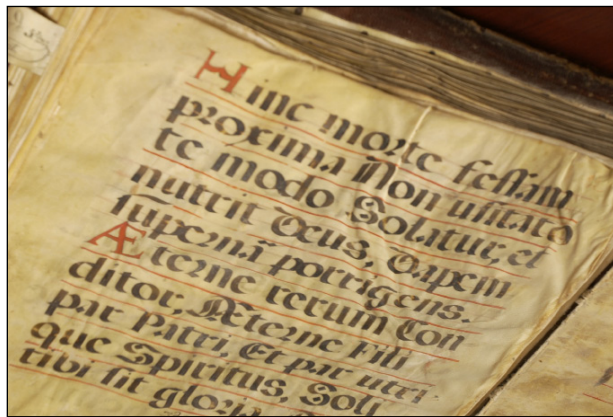 Hinc morte fessam
proxima Non usitato
te modo Solatur, et
nutrit Deus, Dapem
supernã porrigens.
Æterne rerum Con
ditor, Æterne Fili
par Patri, Et par utri
que Spiritus, Soli
tibi sit gloria